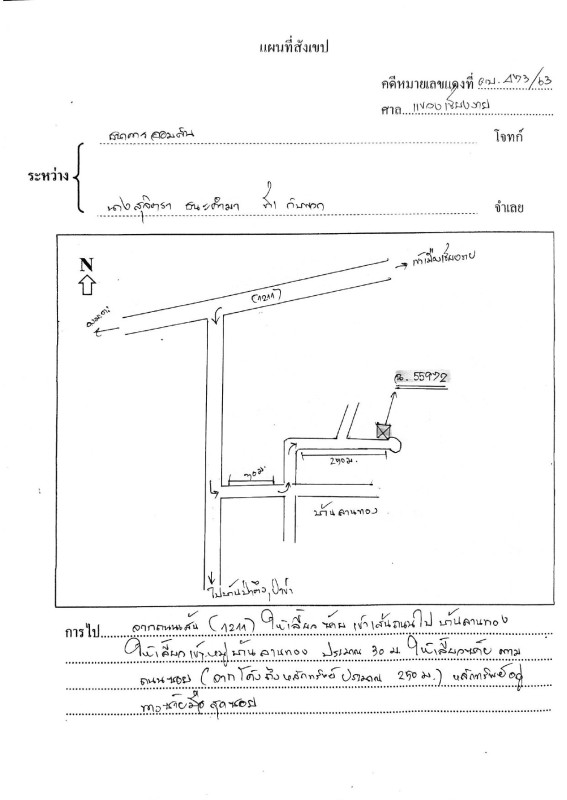 แผนที่สังเขป
คดีหมายเลขแดงที่ ผบ. 473/63
ศาล แขวงเชียงราย
ธนาคารออมสิน โจทก์
ระหว่าง
นางสุจิตรา ที่1 กับพวก จำเลย
N
(1211)
น. 55972
30 ม.
250 ม.
บ้านลานทอง
ไปบ้านป่าตึง,
การไป จากถนนเส้น (1211) ให้เลี้ยวซ้าย เข้าเส้นถนนไป บ้านลานทอง
ให้เลี้ยวเข้าหมู่บ้านลานทอง ประมาณ 30 ม. ให้เลี้ยวซ้าย ตาม
ถนนซอย (จากโค้งถึงหลักทรัพย์ ประมาณ 250 ม.) หลักทรัพย์อยู่
ทางซ้ายมือ สุดซอย